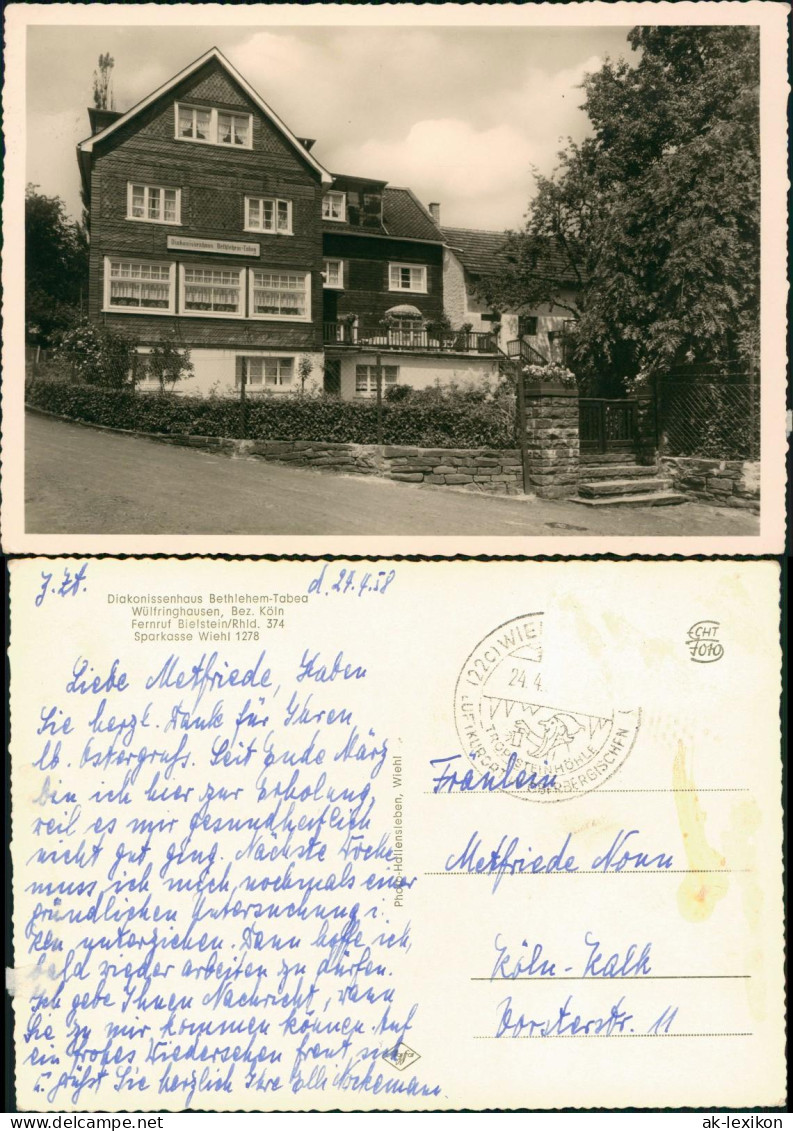 Diakonissenhaus Bethlehem-Tabea
z. Zt.
d. 24.4.58
Diakonissenhaus Bethlehem-Tabea
Wülfringhausen, Bez. Köln
Fernruf Bielstein/Rhld. 374
Sparkasse Wiehl 1278
Liebe Metfriede, Haben
Sie herzl. Dank für Ihren
lb. Ostergruß. Seit Ende März
bin ich hier zur Erholung,
weil es mir gesundheitlich
nicht gut ging. Nächste Woche
muss ich mich nochmals einer
gründlichen Untersuchung i.
unterziehen. Dann hoffe ich,
bald wieder arbeiten zu dürfen.
Ich gebe Ihnen Nachricht, wann
Sie zu mir kommen können. Auf
ein frohes Wiedersehen freut sich
u. grüßt Sie herzlich Ihre Elli
Photo-Hallensleben, Wiehl
(22C) WIEHL
24.4.
TROPFSTEINHÖHLE
LUFTKURORT OBERBERGISCHEN
ECHT
7010
Fräulein
Metfriede Nonn
Köln-Kalk
Vorsterstr. 11
ak-lexikon
ak-lexikon.com